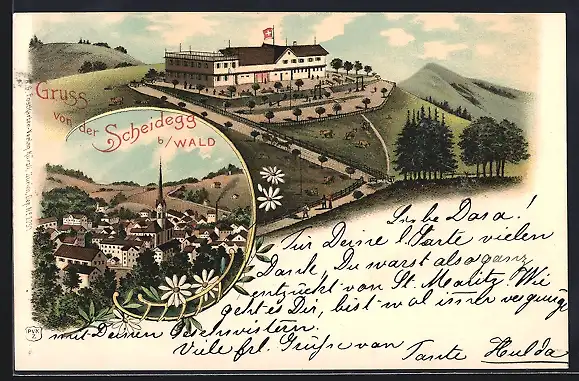 Gruss
von der Scheidegg
b/WALD
Liebe Dora!
Für Deine l. Karte vielen
Dank, Du warst also ganz
entzückt von St. Moritz! Wie
geht es Dir, bist wol immer vergnügt
mit Deinen Geschwistern.
Viele frl. Grüsse von Tante Hulda